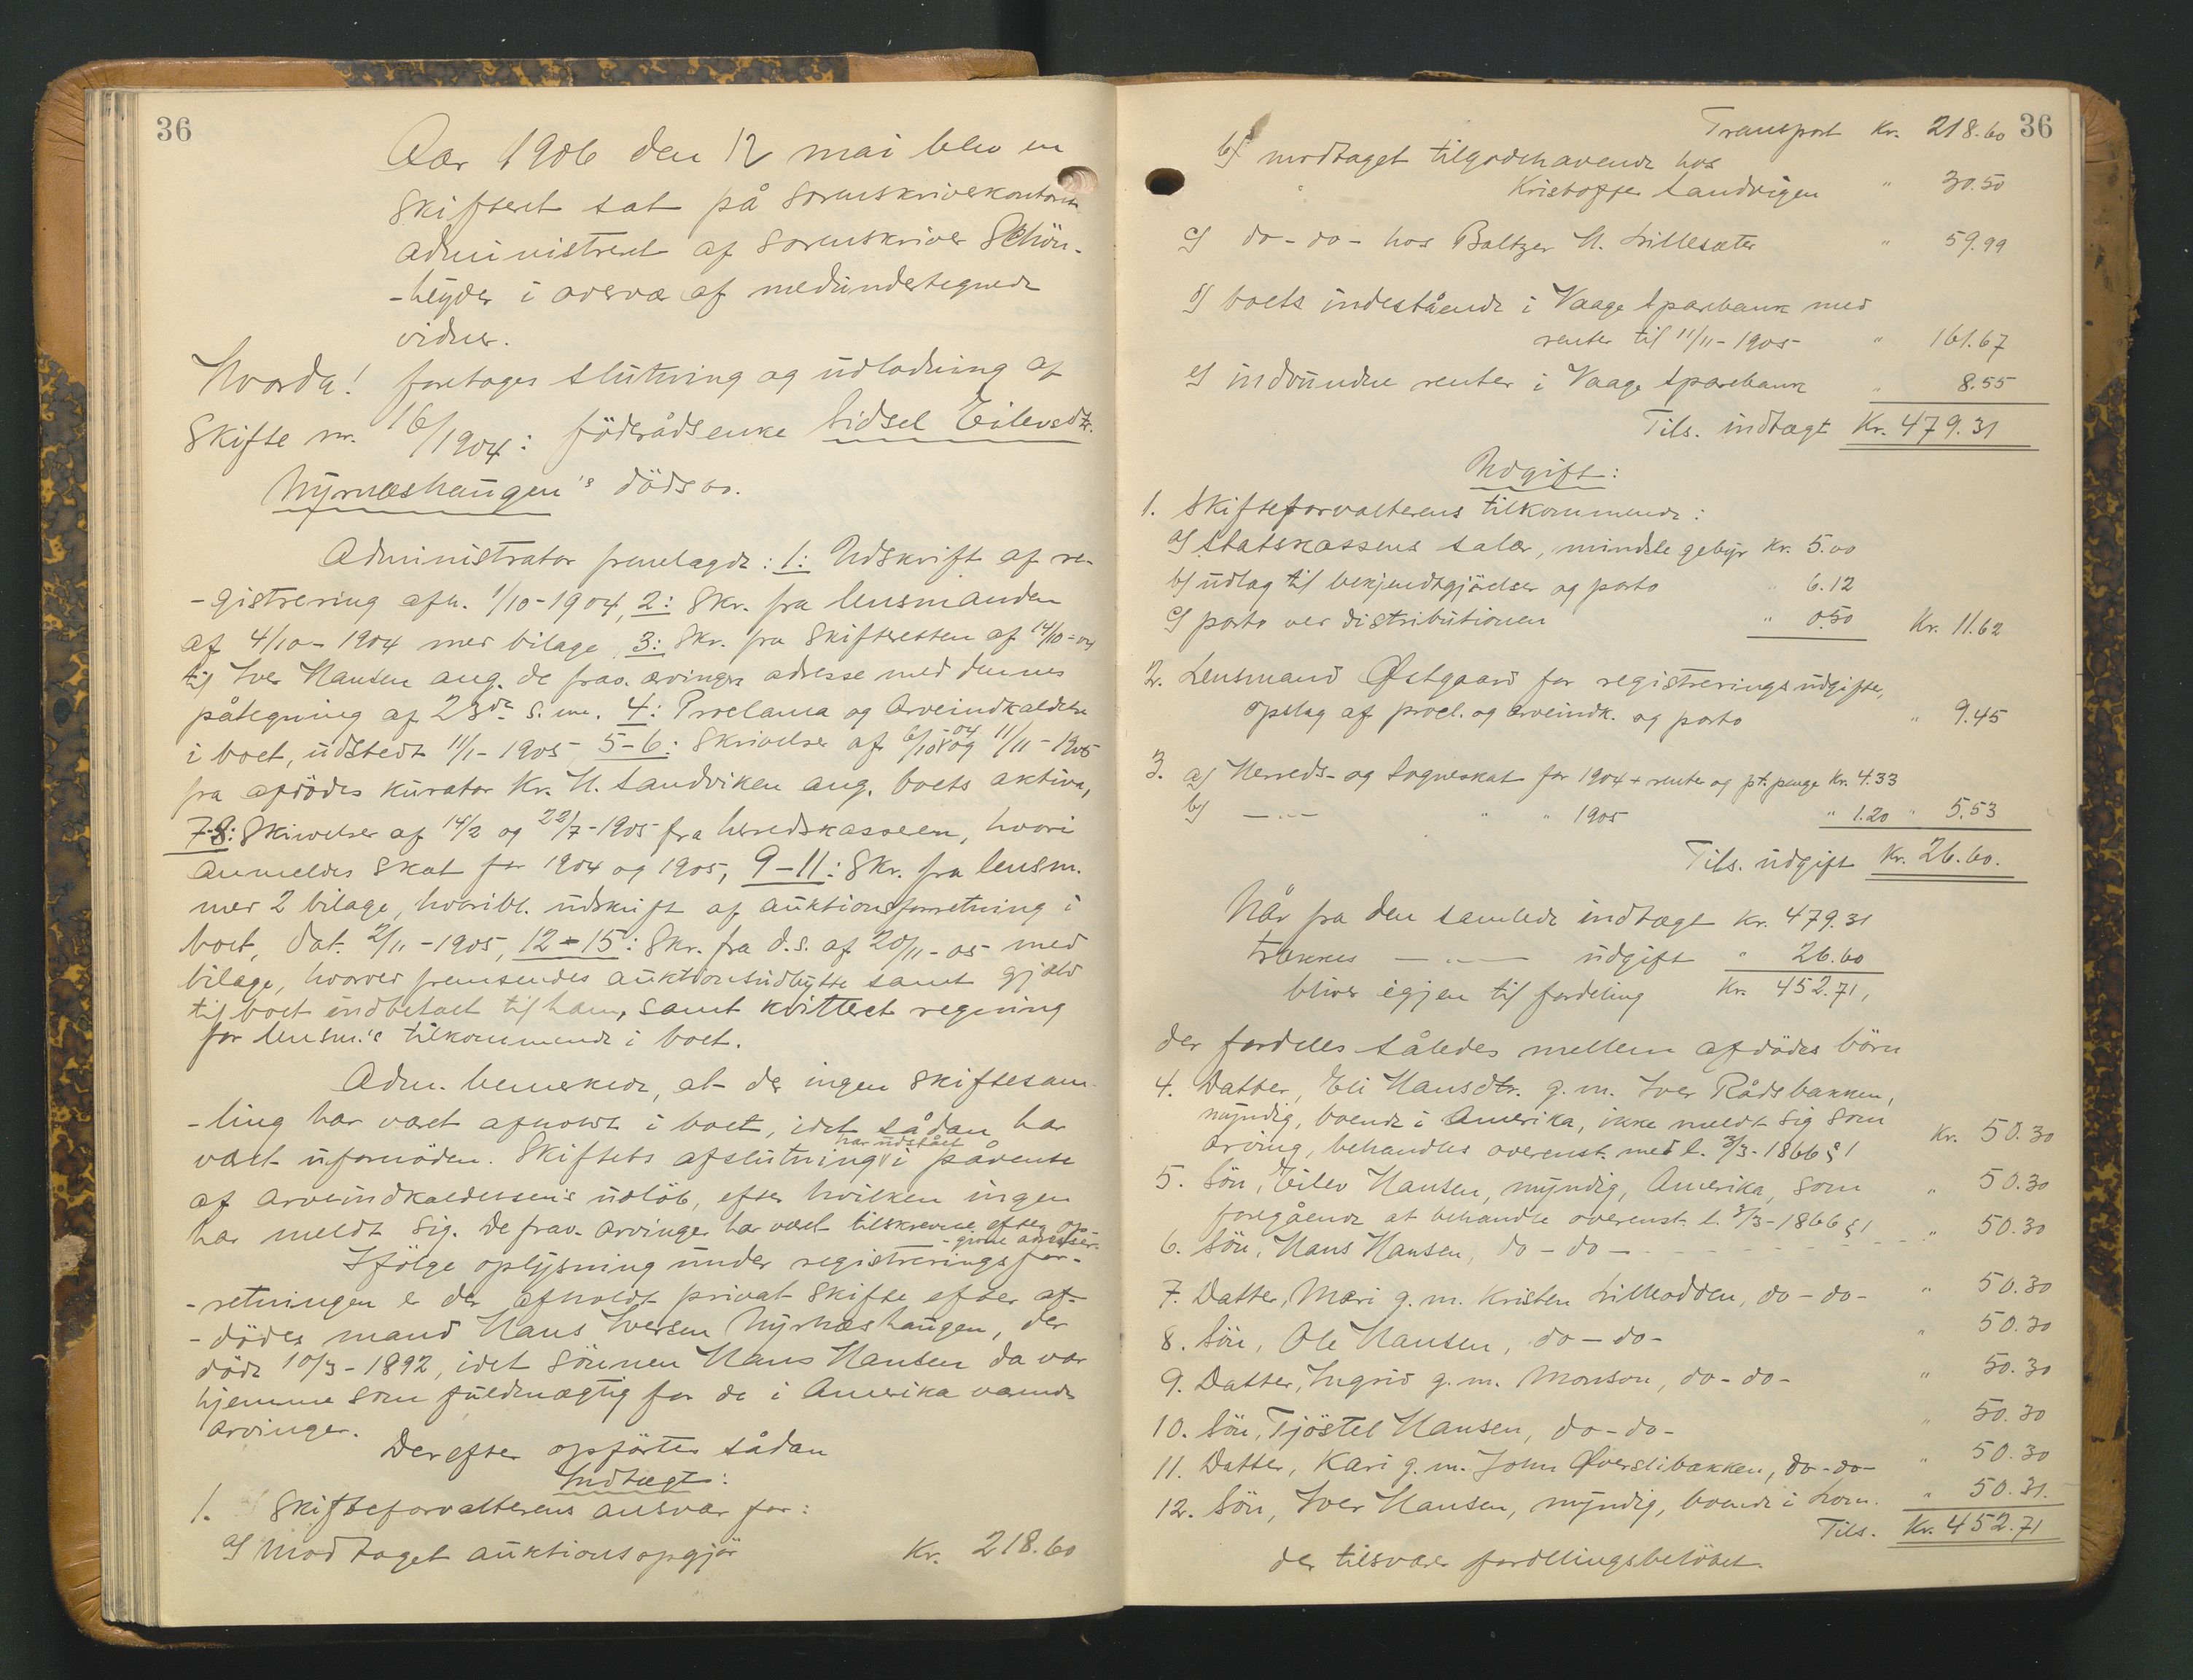 36
Aar 1906 den 12 mai blev en
skifteret sat på sorenskriverkontoret
administreret af sorenskriver Schön-
-heyder i overvær af medundertegnede
vidner.
Hvorda! foretoges slutning og udlodning af
Skifte nr. 16/1904: föderådsenke Sidsel Eilevsdtr.
Nyrnæshaugen's dödsbo.
Administrator fremlagde: 1: Udskrift af re-
-gistrering afh. 1/10-1904, 2: Skr. fra lensmanden
af 4/10-1904 med bilage, 3: Skr. fra skifteretten af 14/10-04
til Iver Hansen ang. de frav. arvingers adresse med dennes
påtegning af 23de s. m. 4: Proclama og Arveindkaldelse
i boet, udstedt 11/1-1905, 5-6: Skrivelser af 6/10-04 og 11/11-1905
fra afdödes kurator Kr. H. Sandviken ang. boets aktiva,
7-8: Skrivelser af 14/2 og 22/7-1905 fra herredskasseren, hvori
anmeldes skat for 1904 og 1905, 9-11: Skr. fra lensm.
med 2 bilage, hvoribl. udskrift af auktionsforretning i
boet, dat. 2/11-1905, 12-15: Skr. fra d.s. af 20/11-05 med
bilage, hvorved fremsendes auktionsudbytte samt gjæld
til boet indbetalt til ham, samt kvitteret regning
for lensm.'s tilkommende i boet.
Adm. bemerkede, at der ingen skiftesam-
-ling har været afholdt i boet, idet sådan har
været ufornöden. Skiftets afslutning har udstået i påvente
af arveindkaldelsens udlöb, efter hvilken ingen
har meldt sig. De frav. arvinger har været tilskrevne efter op-
-givne adresser.
Ifölge oplysning under registreringsfor-
-retningen er der afholdt privat skifte efter af-
-dödes mand Hans Iversen Nyrnæshaugen, der
döde 10/3-1892, idet sönnen Hans Hansen da var
hjemme som fuldmægtig for de i Amerika værende
arvinger.
Derefter opförtes sådan
Indtægt:
1. Skifteforvalterens ansvar for:
a) Modtaget auktionsopgjör Kr. 218.60
36
Transport Kr. 218.60
b) modtaget tilgodehavende hos
Kristoffer Sandvigen " 30.50
c) do-do- hos Baltzer H. Lillesæter " 59.99
d) boets indestående i Vaage Sparebank med
renter til 11/11-1905 " 161.67
e) indvundne renter i Vaage Sparebank " 8.55
Tils. indtægt Kr. 479.31
Udgift:
1. Skifteforvalterens tilkommende:
a) Statskassens salær, mindste gebyr Kr. 5.00
b) udlæg til bekjendtgjörelser og porto " 6.12
c) porto ved distributionen " 0.50 Kr. 11.62
2. Lensmand Østgaard for registreringsudgifter,
opslag af procl. og arveindk. og porto " 9.45
3. a) Herreds- og sogneskat for 1904 + renter og pt. penge Kr. 4.33
b) — " — " " 1905 " 1.20 " 5.53
Tils. udgift Kr. 26.60.
Når fra den samlede indtægt Kr. 479.31
trækkes — " — udgift " 26.60
bliver igjen til fordeling Kr. 452.71,
der fordeles således mellem afdödes börn
4. Datter, Eli Hansdtr. g. m. Iver Rådsbakken,
myndig, boende i Amerika, ikke meldt sig som
arving, behandles overenst. med l. 3/3-1866 § 1 Kr. 50.30
5. Sön, Eilev Hansen, myndig, Amerika, som
foregående at behandle overenst. l. 3/3-1866 § 1 " 50.30
6. Sön, Hans Hansen, do-do- " 50.30
7. Datter, Mari g. m. Kristen Lilleodden, do-do- " 50.30
8. Sön, Ole Hansen, do-do- " 50.30
9. Datter, Ingrid g. m. Monson, do-do- " 50.30
10. Sön, Tjöstel Hansen, do-do- " 50.30
11. Datter, Kari g. m. John Øverslibakken, do-do- " 50.30
12. Sön, Iver Hansen, myndig, boende i Lom. " 50.31.
Tils. Kr. 452.71
der tilsvarer fordelingsbelöbet.